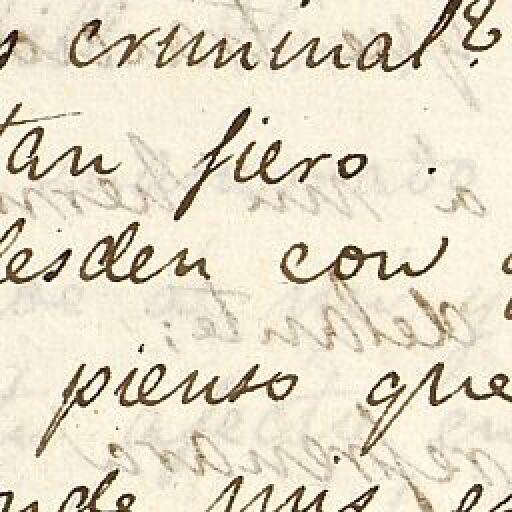 criminal?
tan fiero.
desden con
pienso que
mis